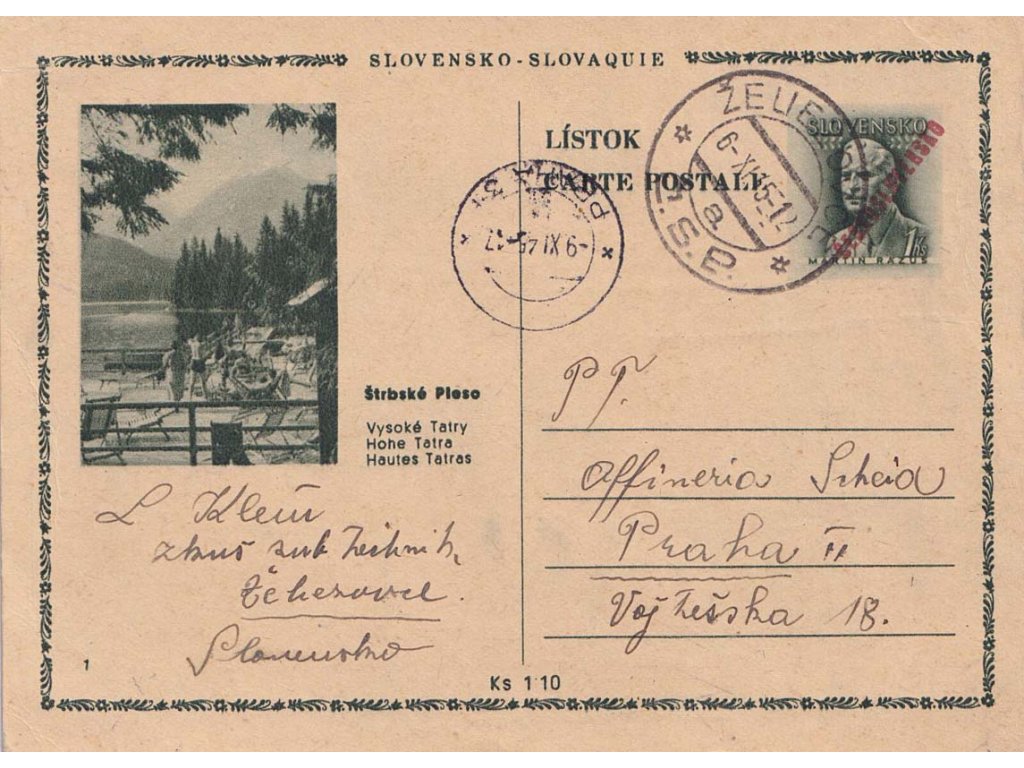 SLOVENSKO - SLOVAQUIE
LÍSTOK
CARTE POSTALE
SLOVENSKO
1 Ks
MARTIN RÁZUS
6-XI 45-12
a
PRAHA 31
-9 XI 45-17
Štrbské Pleso
Vysoké Tatry
Hohe Tatra
Hautes Tatras
P T.
Affineria Scheid
Praha II
Vojtešska 18.
L Klein
zkuš zub technik,
Slovensko
1
Ks 1·10